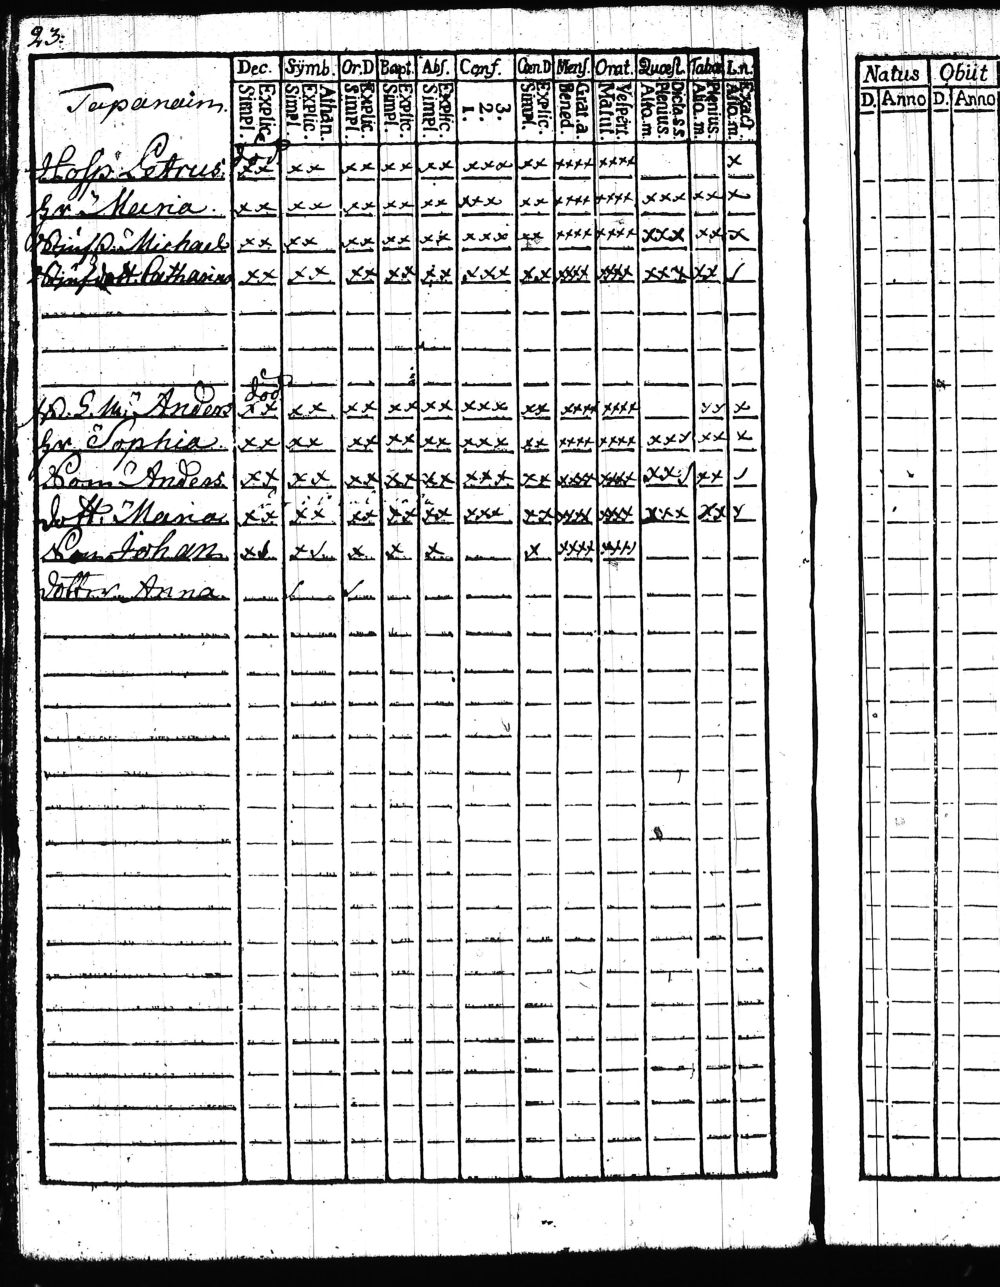 23:
Dec. Symb. Or.D Bapt. Abs. Conf. Cœn.D Mens. Orat. Quæst. Tabœ L.n.
Tapanain.
Explic. Simpl. Athan. Explic. Simpl. Explic. Simpl. Explic. Simpl. Explic. Simpl. 3. 2. 1. Explic. Simpl. Grat.a. Bened. Vespert. Matut. Dicta S.S. Plenius. Aliq.m. Plenius. Aliq.m. Exact. Aliq.m.
död
Hosp. Petrus. x x x x x x x x x x x x x x x x x x x x x x x x
hr. Maria. x x x x x x x x x x x x x x x x x x x x x x x x x x x x x
Michael x x x x x x x x x x x x x x x x x x x x x x x x x x x x x
Catharina x x x x x x x x x x x x x x x x x x x x x x x x x x x x /
död
Anders x x x x x x x x x x x x x x x x x x x x x x x x x x
hr. Sophia x x x x x x x x x x x x x x x x x x x x x x x x x x x x x
Son Anders x x x x x x x x x x x x x x x x x x x x x x x x x x x x /
dott. Maria x x x x x x x x x x x x x x x x x x x x x x x x x x x x x
Son Johan
dotter Anna / /
Natus Obiit
D. Anno D. Anno